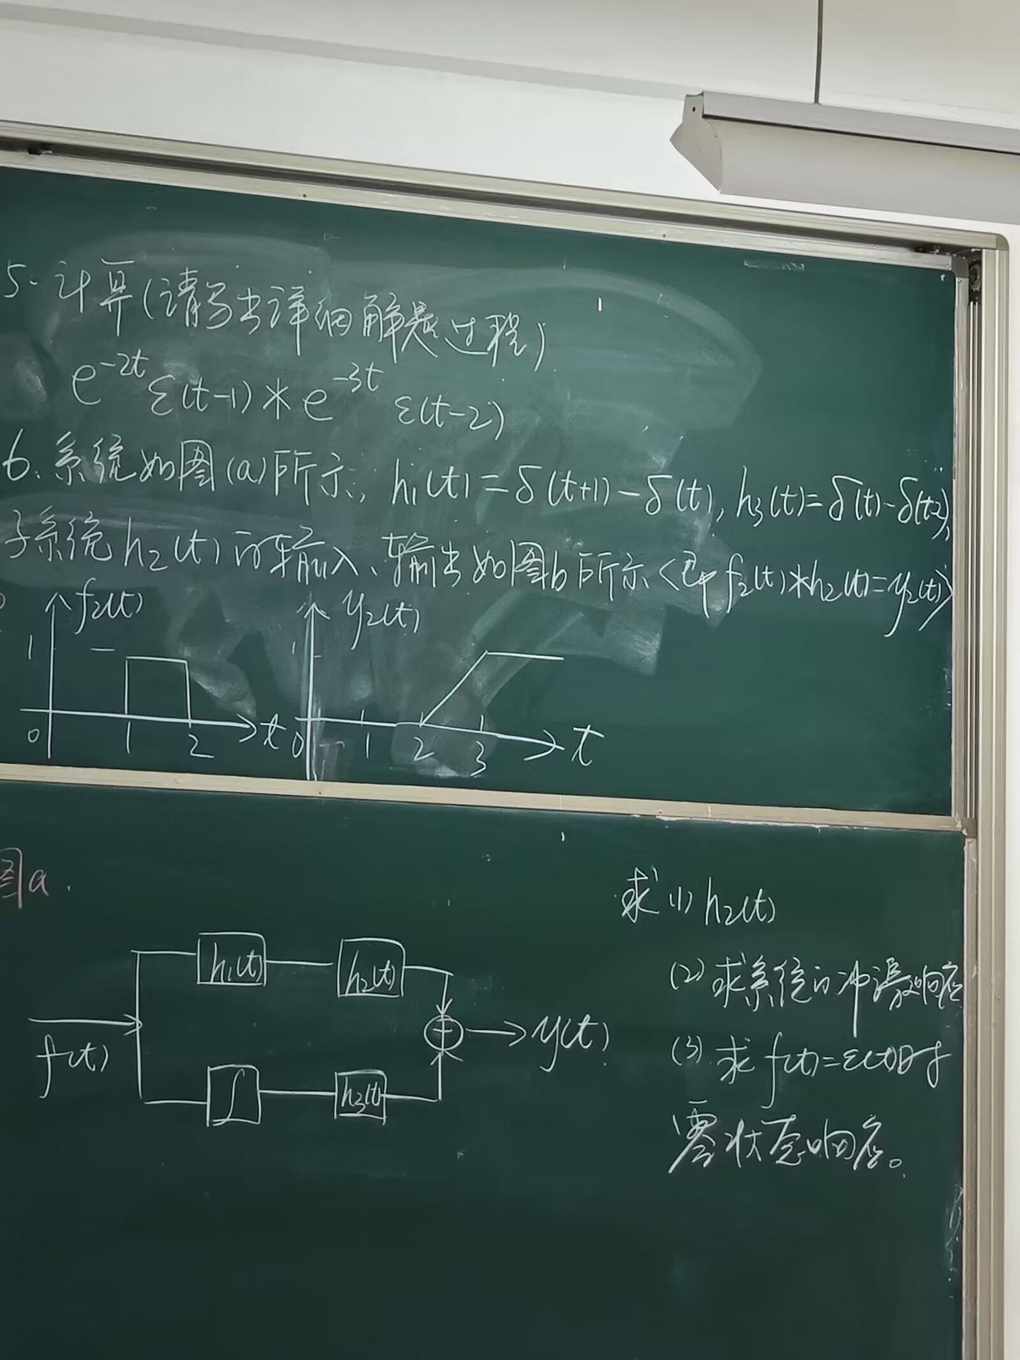 5. 计算(请写出详细解题过程)
e^{-2t} ε(t-1) * e^{-3t} ε(t-2)
6. 系统如图(a)所示, h₁(t)=δ(t+1)-δ(t), h₃(t)=δ(t)-δ(t-2),
子系统h₂(t)的输入、输出如图b所示<即f₂(t)*h₂(t)=y₂(t)>
f₂(t) y₂(t)
1 1
0 1 2 t 0 1 2 3 t
图a.
求(1) h₂(t)
h₁(t) h₂(t)
(2) 求系统的冲激响应
f(t) + y(t)
(3) 求f(t)=ε(t)时
∫ h₃(t)
零状态响应。